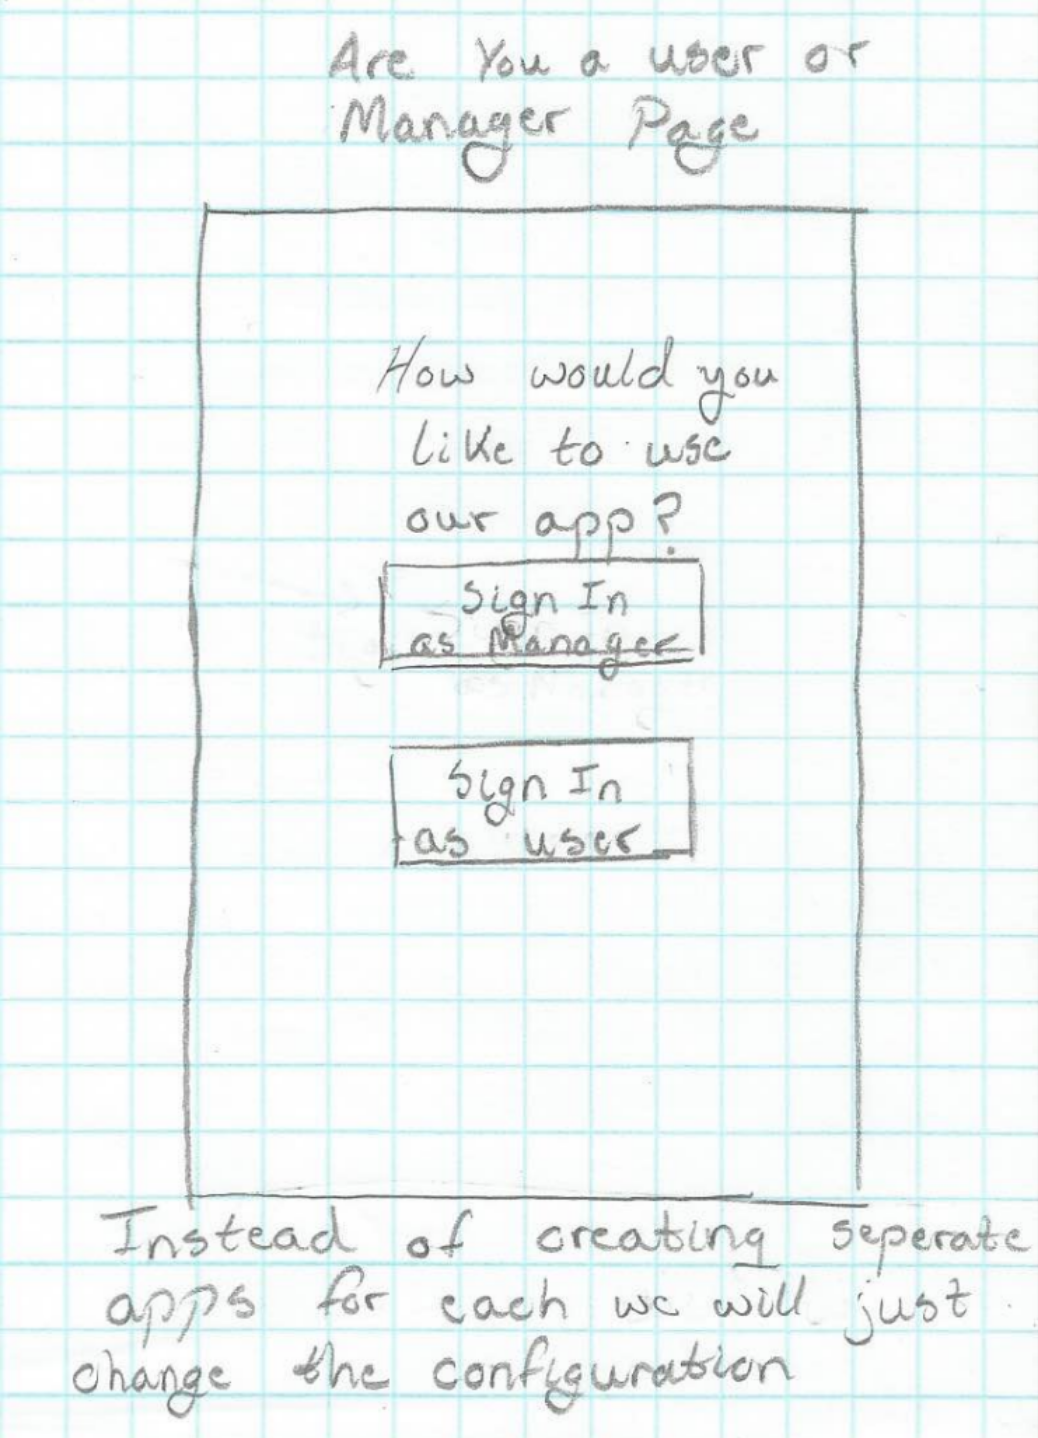 Are You a user or
Manager Page
How would you
like to use
our app?
Sign In
as Manager
Sign In
as user
Instead of creating seperate
apps for each we will just
change the configuration